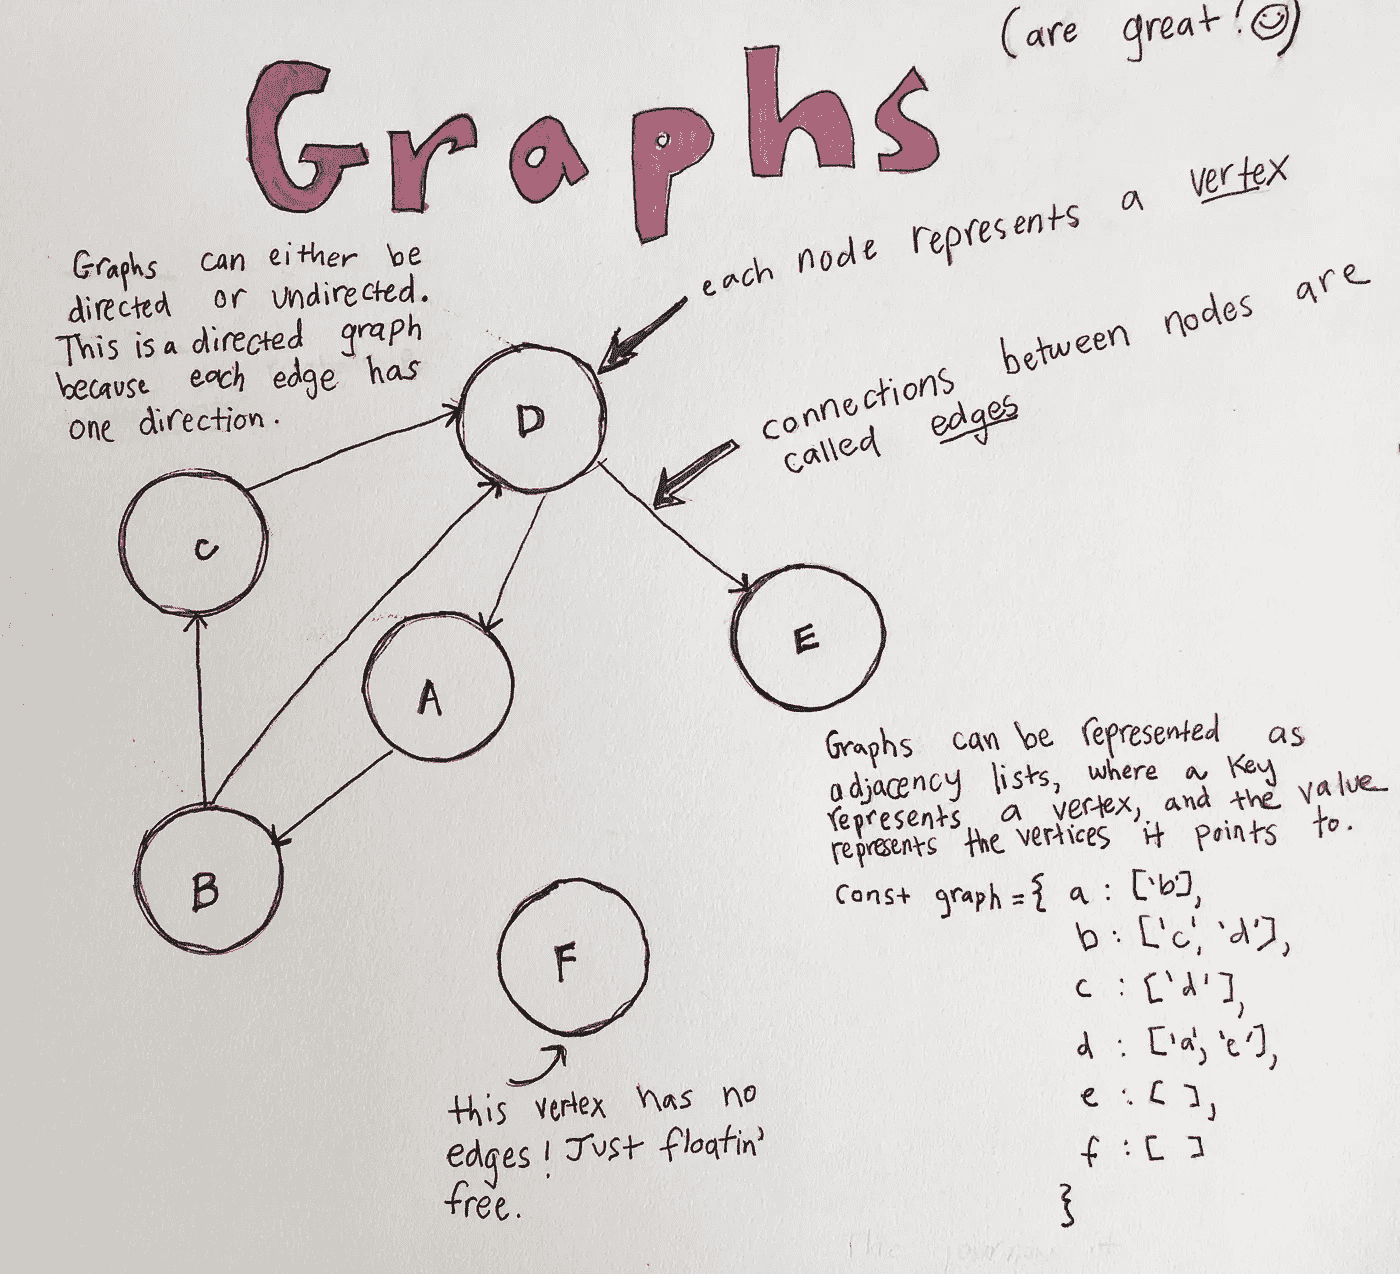 (are great! ☺)
Graphs
Graphs can either be
directed or undirected.
This is a directed graph
because each edge has
one direction.
each node represents a vertex
connections between nodes are
called edges
D
C
E
A
B
F
this vertex has no
edges! Just floatin'
free.
Graphs can be represented as
adjacency lists, where a key
represents a vertex, and the value
represents the vertices it points to.
const graph = { a : ['b'],
b : ['c', 'd'],
c : ['d'],
d : ['a', 'e'],
e : [ ],
f : [ ]
}